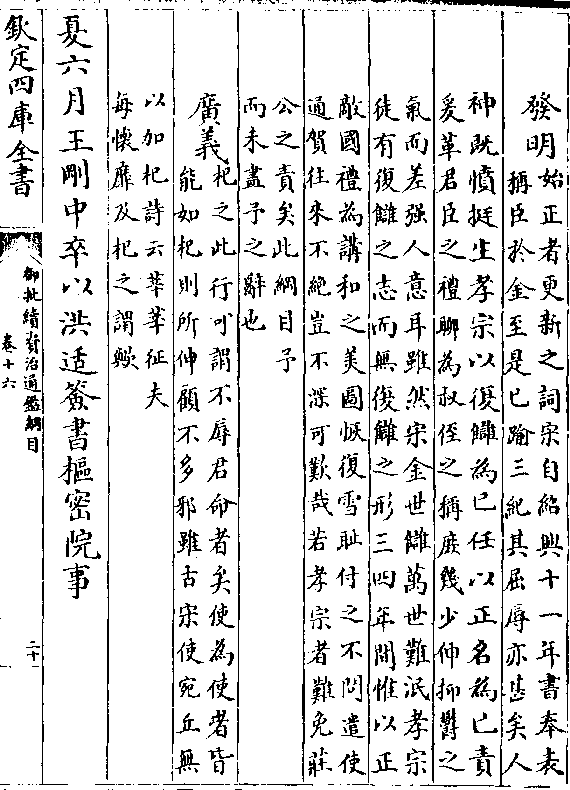 發明始正者更新之詞宋自紹興十一年書奉表
稱臣於金至是已踰三紀其屈辱亦甚矣人
神旣憤挺生孝宗以復讎為已任以正名為已責
爰革君臣之禮聊為叔侄之稱庻幾少伸抑欝之
氣而差强人意耳雖然宋金世讎萬世難泯孝宗
徒有復讎之志而無復讎之形三四年間惟以正
敵國禮為講和之美圖恢復雪耻付之不問遣使
通賀往來不絕豈不深可歎哉若孝宗者難免莊
公之責矣此綱目予
而未盡予之辭也
廣義杞之此行可謂不辱君命者矣使為使者皆
能如杞則所伸顧不多邪雖古宋使宛丘無
以加杞詩云莘莘征夫
每懷靡及杞之謂歟
夏六月王剛中卒以洪适簽書樞密院事
欽定四庫全書
御批續資治通鑑綱目
卷十六
二十